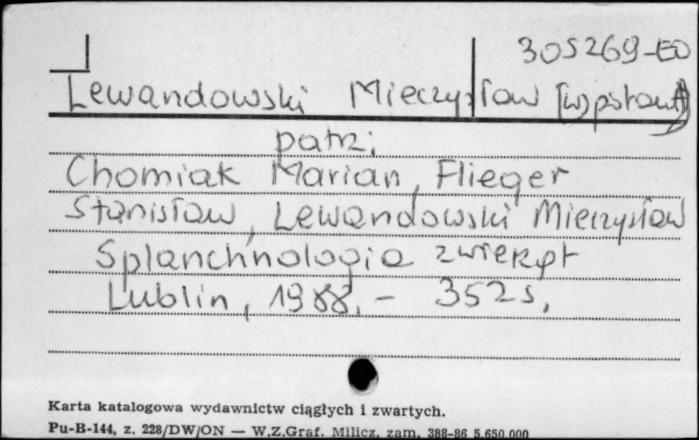 305269-60
Lewandowski Mieczysław [współaut]
patrz:
Chomiak Marian, Flieger
Stanisław, Lewandowski Mieczysław
Splanchnologia zwierząt
Lublin, 1988. - 352 s.
Karta katalogowa wydawnictw ciągłych i zwartych.
Pu-B-144, z. 228/DW/ON — W.Z.Graf. Milicz, zam. 388-86 5.650.000